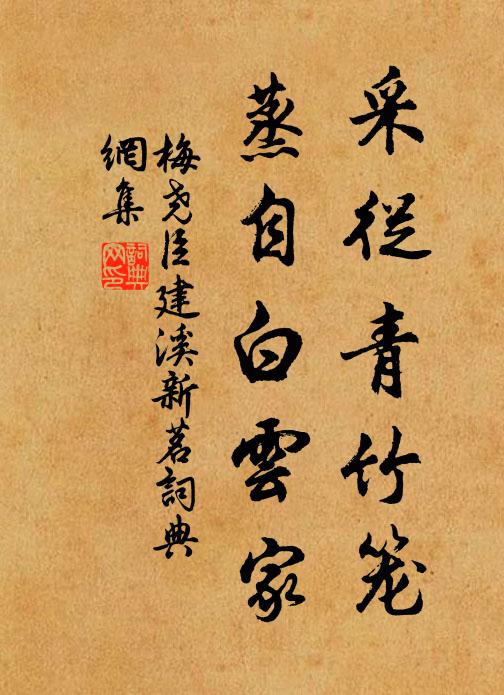 采從青竹笼
蒸自白雲家
梅尧臣建溪新茗詞典
網集
詞典
网印